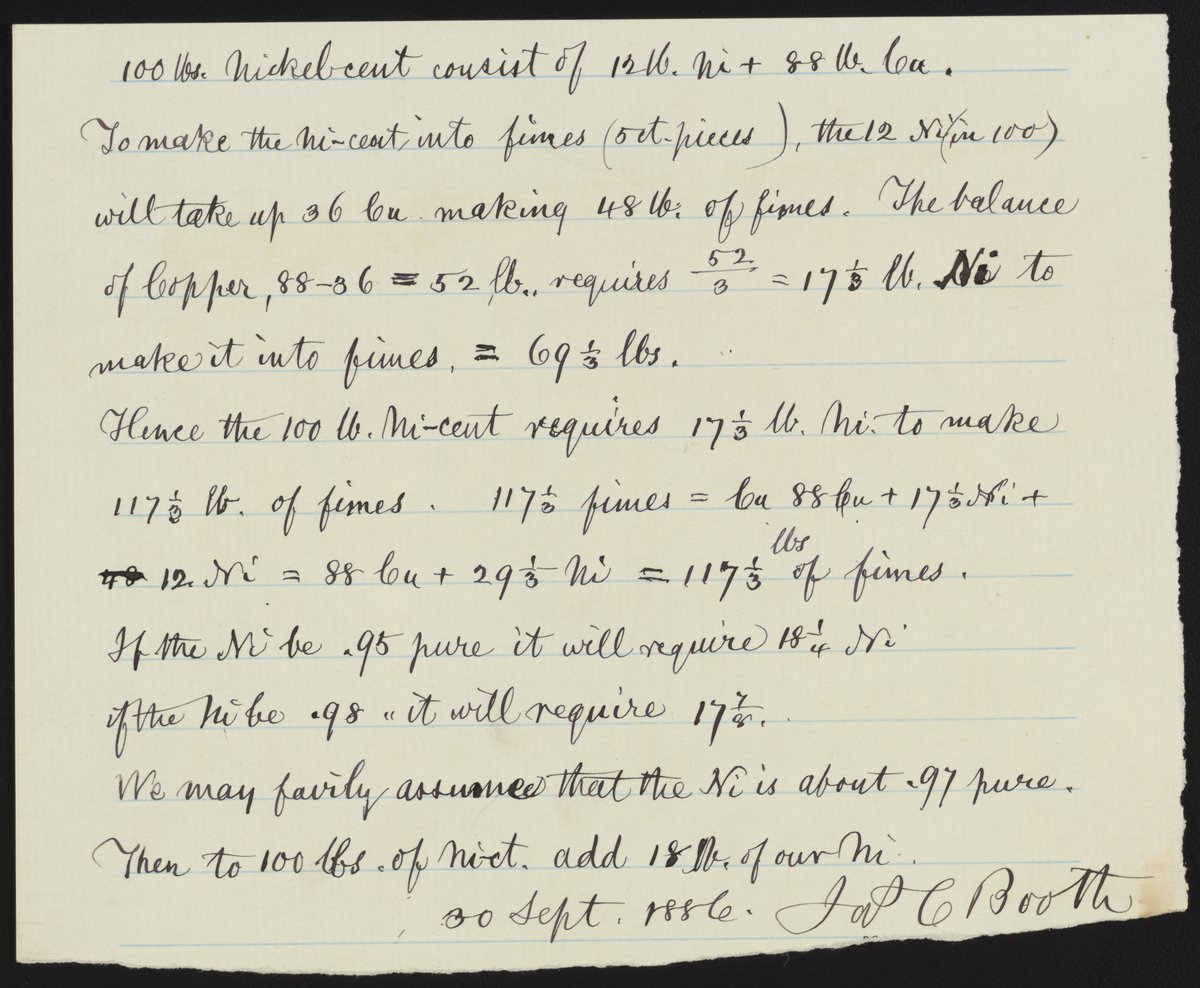 100 lbs. Nickel-cent consist of 12 lb. Ni + 88 lb. Cu.
To make the Ni-cent into fimes (5 ct-pieces), the 12 Ni (in 100)
will take up 36 Cu making 48 lb. of fimes. The balance
of Copper, 88-36 = 52 lb., requires 52/3 = 17 1/3 lb. Ni to
make it into fimes, = 69 1/3 lbs.
Hence the 100 lb. Ni-cent requires 17 1/3 lb. Ni. to make
117 1/3 lb. of fimes. 117 1/3 fimes = Cu 88 Cu + 17 1/3 Ni +
48 12. Ni = 88 Cu + 29 1/3 Ni = 117 1/3 lbs of fimes.
If the Ni be .95 pure it will require 18 1/4 Ni
if the Ni be .98 " it will require 17 7/8.
We may fairly assume that the Ni is about .97 pure.
Then to 100 lbs. of Ni-ct. add 18 lb. of our Ni.
30 Sept. 1886. Jas C Booth